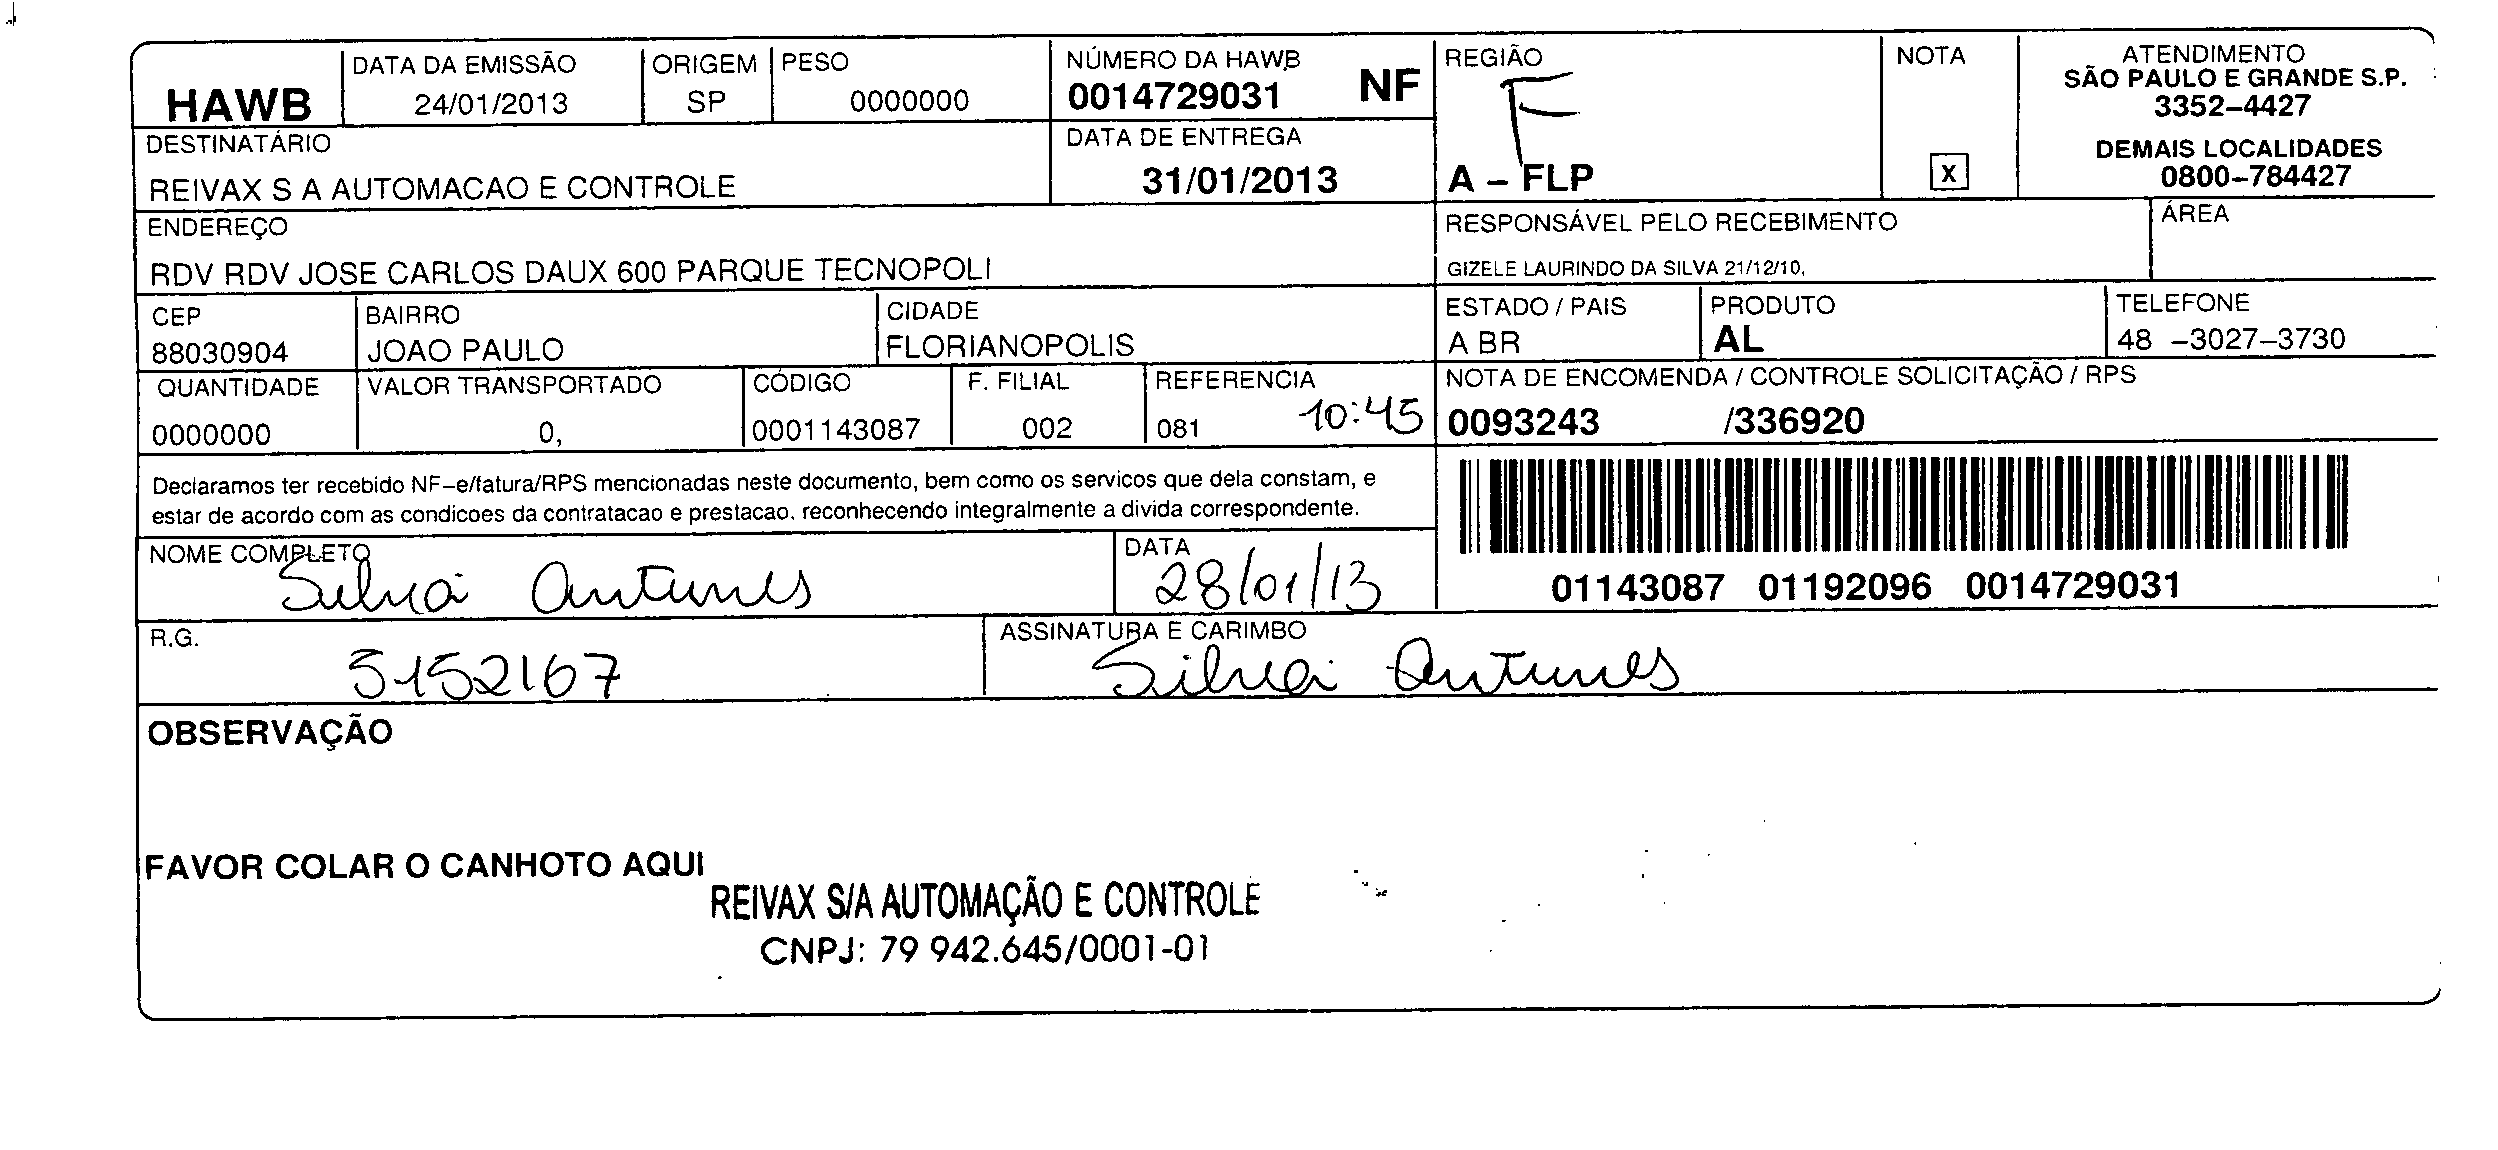 HAWB
DATA DA EMISSÃO
24/01/2013
ORIGEM
SP
PESO
0000000
NÚMERO DA HAWB
0014729031 NF
REGIÃO
F
A – FLP
NOTA
X
ATENDIMENTO
SÃO PAULO E GRANDE S.P.
3352–4427
DEMAIS LOCALIDADES
0800–784427
DESTINATÁRIO
REIVAX S A AUTOMACAO E CONTROLE
DATA DE ENTREGA
31/01/2013
ENDEREÇO
RDV RDV JOSE CARLOS DAUX 600 PARQUE TECNOPOLI
RESPONSÁVEL PELO RECEBIMENTO
GIZELE LAURINDO DA SILVA 21/12/10,
ÁREA
CEP
88030904
BAIRRO
JOAO PAULO
CIDADE
FLORIANOPOLIS
ESTADO / PAIS
A BR
PRODUTO
AL
TELEFONE
48 –3027–3730
QUANTIDADE
0000000
VALOR TRANSPORTADO
0,
CÓDIGO
0001143087
F. FILIAL
002
REFERENCIA
081 10:45
NOTA DE ENCOMENDA / CONTROLE SOLICITAÇÃO / RPS
0093243 /336920
Declaramos ter recebido NF–e/fatura/RPS mencionadas neste documento, bem como os servicos que dela constam, e
estar de acordo com as condicoes da contratacao e prestacao, reconhecendo integralmente a divida correspondente.
01143087 01192096 0014729031
NOME COMPLETO
Silvia Antunes
DATA
28/01/13
R.G.
5152167
ASSINATURA E CARIMBO
Silvia Antunes
OBSERVAÇÃO
FAVOR COLAR O CANHOTO AQUI
REIVAX S/A AUTOMAÇÃO E CONTROLE
CNPJ: 79 942.645/0001-01